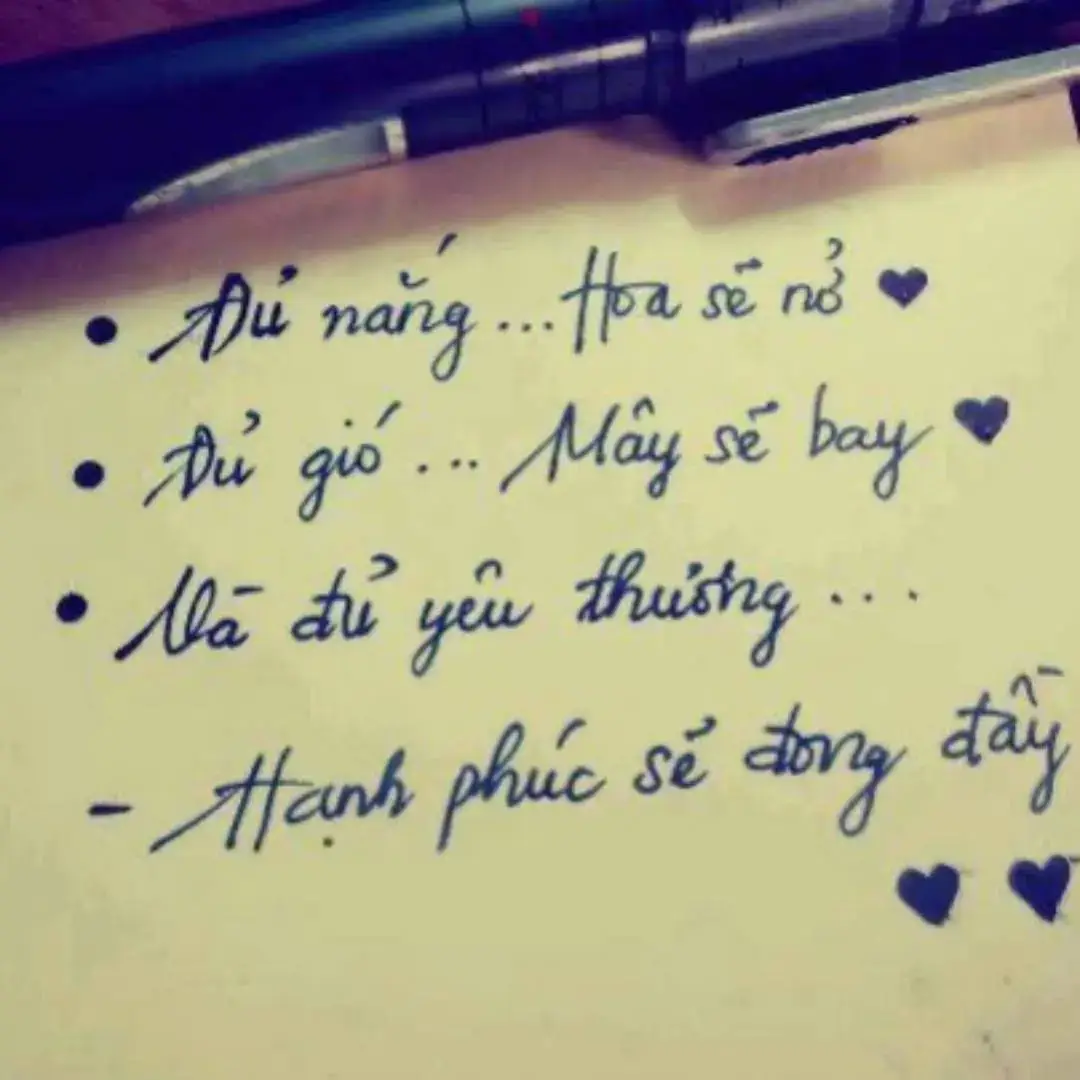 • Đủ nắng... Hoa sẽ nở ♥
• Đủ gió... Mây sẽ bay ♥
• Và đủ yêu thương...
- Hạnh phúc sẽ đong đầy
♥ ♥